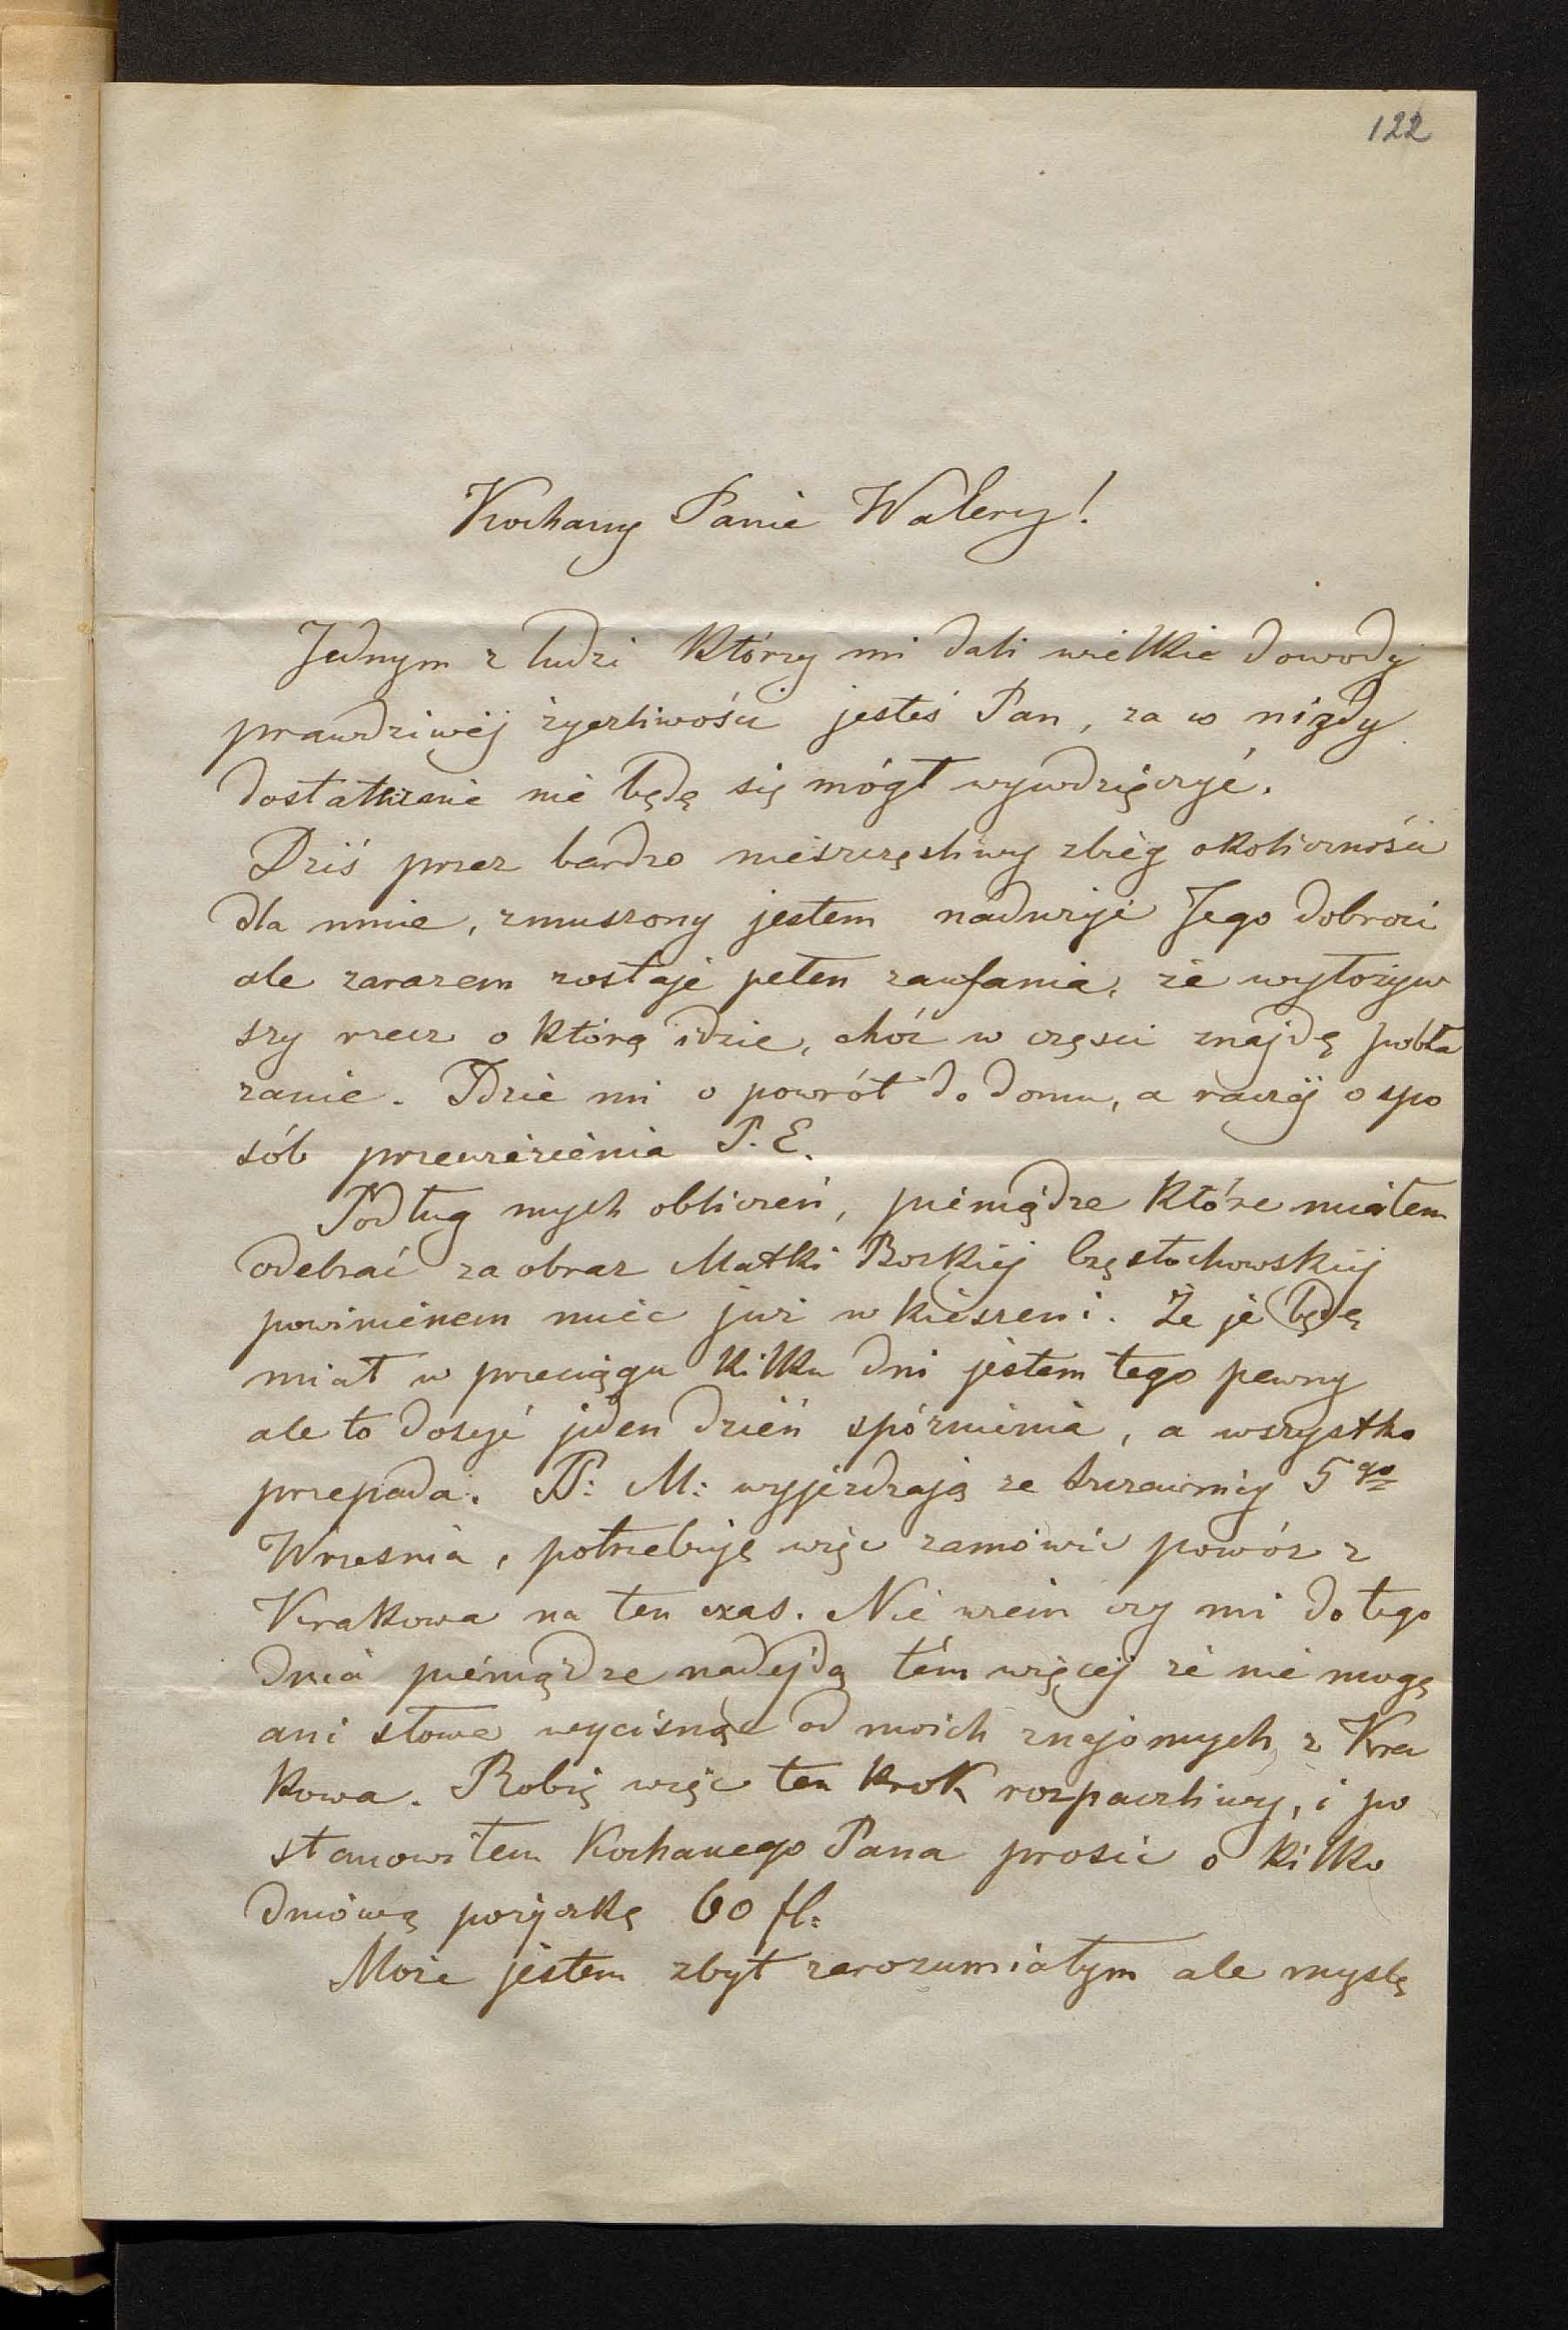 122
Kochany Panie Walery!
Jednym z ludzi którzy mi dali wielkie dowody
prawdziwéj życzliwości jesteś Pan, za co nigdy
dostatecznie nie będę się mógł wywdzięczyć.
Dziś przez bardzo nieszczęsliwy zbieg okoliczności
dla mnie, zmuszony jestem nadużyć Jego dobroci
ale zarazem zostaję pełen zaufania, że wyłożyw
szy rzecz o którą idzie, choć w częsci znajdę pobła
żanie. Idzie mi o powrót do domu, a raczéj o spo
sób przewiezienia P. E.
Podług mych obliczeń, pieniądze które miałem
odebrać za obraz Matki Boskiej Częstochowskiéj
powinienem mieć już w kieszeni. Że je będę
miał w przeciągu kilku dni jestem tego pewny
ale to dosyć jeden dzień spóznienia, a wszystko
przepada. PP: M: wyjezdzają ze Szczawnicy 5go
Wrzesnia, potrzebuję więc zamówić powóz z
Krakowa na ten czas. Nie wiem czy mi do tego
dnia pieniądze nadejdą tém więcej że nie mogę
ani słowa wycisnąć od moich znajomych z Kra
kowa. Robię więc ten krok rozpaczliwy, i po
stanowiłem Kochanego Pana prosić o kilko
dniówą pożyczkę 60 fl:
Może jestem zbyt zarozumiałym ale myslę